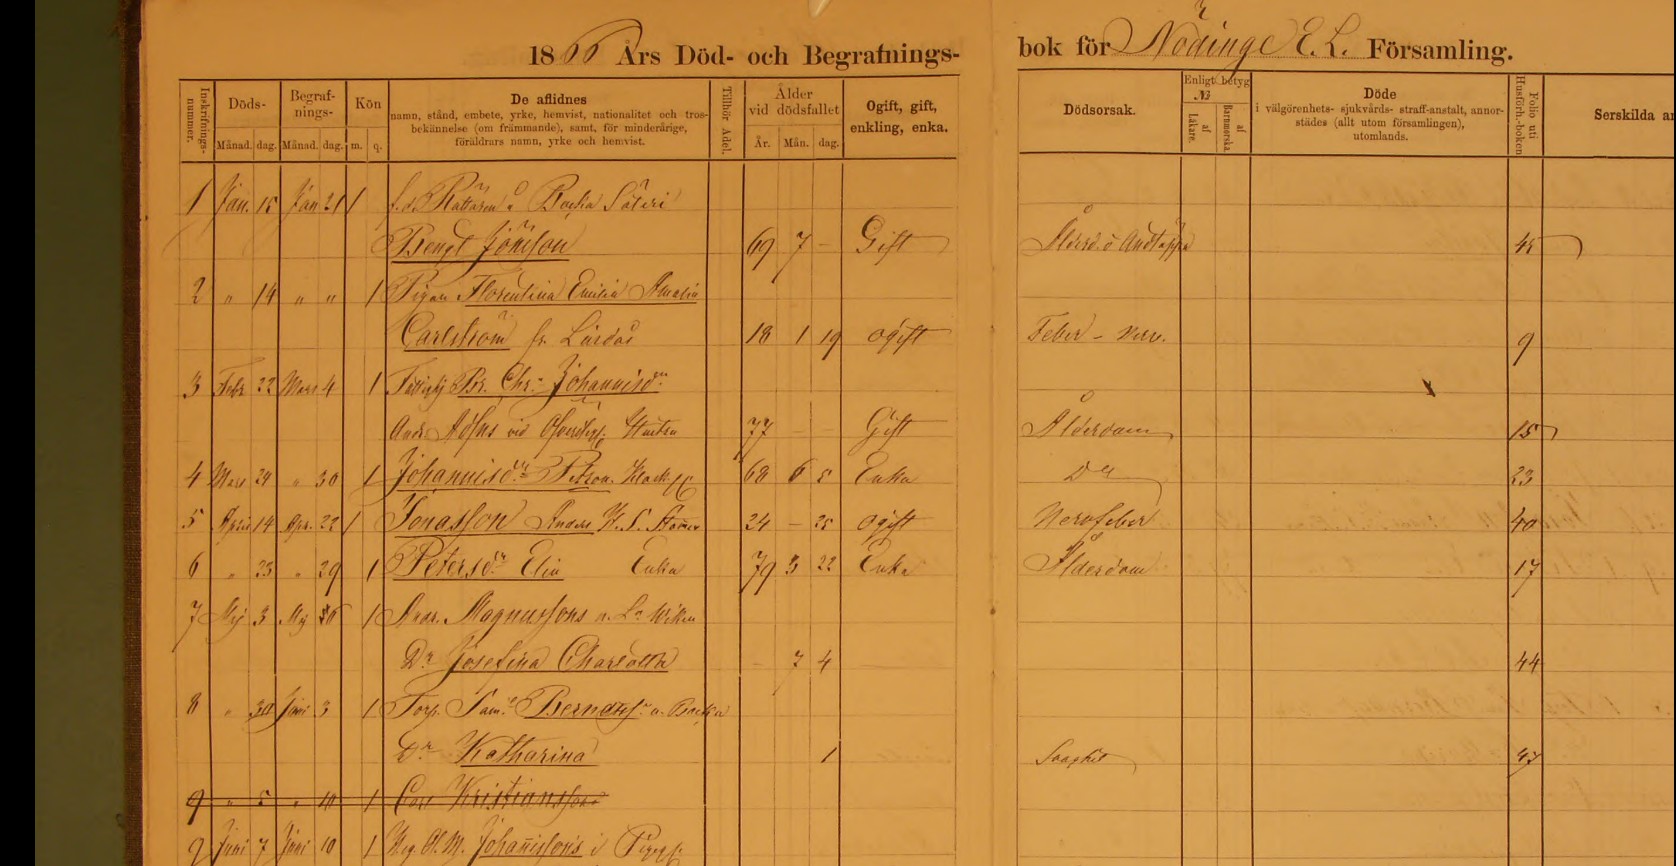 1866 Års Död- och Begrafnings-bok för Nödinge E.L. Församling.
Inskrifnings-nummer. Döds- Begraf-nings- Kön De aflidnes Tillhör Adel. Ålder vid dödsfallet Ogift, gift, enkling, enka. Dödsorsak. Enligt betyg № Döde Folio uti Husförh.-boken Serskilda an
namn, stånd, embete, yrke, hemvist, nationalitet och tros-
bekännelse (om främmande), samt, för minderårige,
föräldrars namn, yrke och hemvist.
i välgörenhets- sjukvårds- straff-anstalt, annor-
städes (allt utom församlingen),
utomlands.
Månad. dag. Månad. dag. m. q. År. Mån. dag. af Läkare. af Barnmorska.
1 Jan. 15 Jan 21 1 f.d. Rättaren Backa Säteri
Bengt Jönsson 69 7 – Gift Ålderd. o Andtäppa 45
2 " 14 " " 1 Pigan Florentina Emilia Amalia
Carlström fr. Lärdas 18 1 19 ogift Feber – Nerv. 9
3 Febr 22 Mars 4 1 Chr. Johannisd:n
And. vid 77 – – Gift Ålderdom 15
4 Mars 24 " 30 1 Johannisd:r 68 6 5 Enka D:o 23
5 April 14 Apr. 22 1 Jonasson Anders 24 – 25 ogift Nervfeber 40
6 " 23 " 29 1 Petersd:r Elin Enka 79 3 22 Enka Ålderdom 17
7 Maj 3 Maj 1 Andr. Magnussons
D:r Josefina Charlotta – 7 4 44
8 " 30 Juni 3 1 Torp. Sam:l Berndtss: Backa
D:r Katharina 1 47
9 " 5 " 10 1 Carl Kristiansson
9 Juni 7 Juni 10 1 Johannissons i